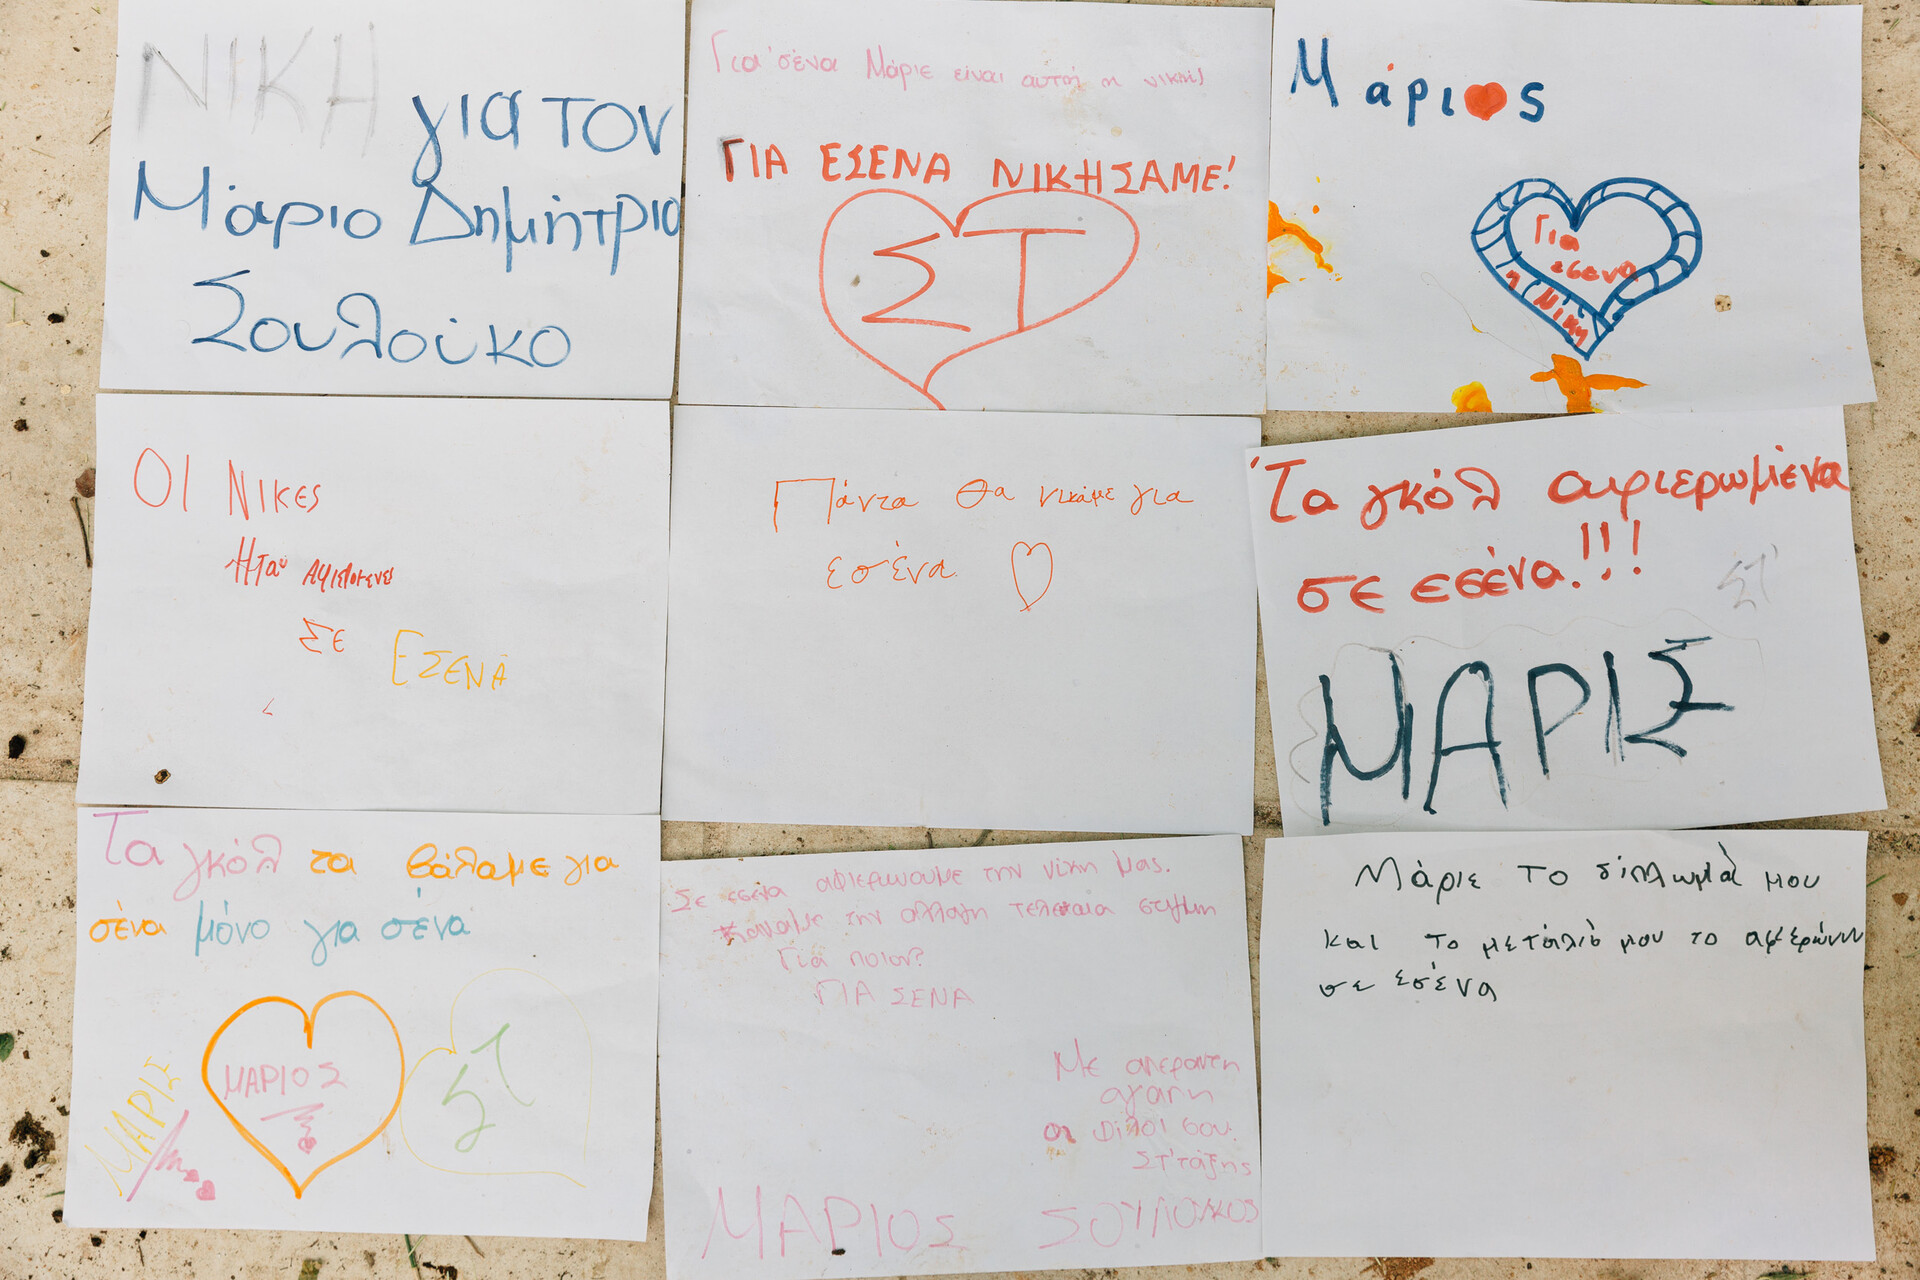 ΝΙΚΗ για τον
Μάριο Δημήτριο
Σουλούκο
Για 'σένα Μάριε είναι αυτή η νίκη!
ΓΙΑ ΕΣΕΝΑ ΝΙΚΗΣΑΜΕ!
ΣΤ
Μάρι♥ς
Για
εσενα
η Νίκη
ΟΙ ΝΙΚΕΣ
Ήταν
ΣΕ ΕΣΕΝΑ
Πάντα θα νικάμε για
εσένα ♡
Τα γκόλ αφιερωμένα
σε εσένα!!!
ΣΤ'
ΜΑΡΙΣ
Τα γκόλ τα βάλαμε για
σένα μόνο για σένα
ΜΑΡΙΣ
ΜΑΡΙΟΣ
ΣΤ
Σε εσενα αφιερωνουμε την νίκη μας.
καναμε την αλλαγη τελευταια στιγμη
Για ποιον?
ΓΙΑ ΣΕΝΑ
Με απεραντη
αγαπη
οι φιλοι σου.
ΣΤ' τάξης
ΜΑΡΙΟΣ ΣΟΥΛΟΥΚΟΣ
Μάριε το δίπλωμά μου
και το μετάλιό μου το αφιερώνω
σε εσένα